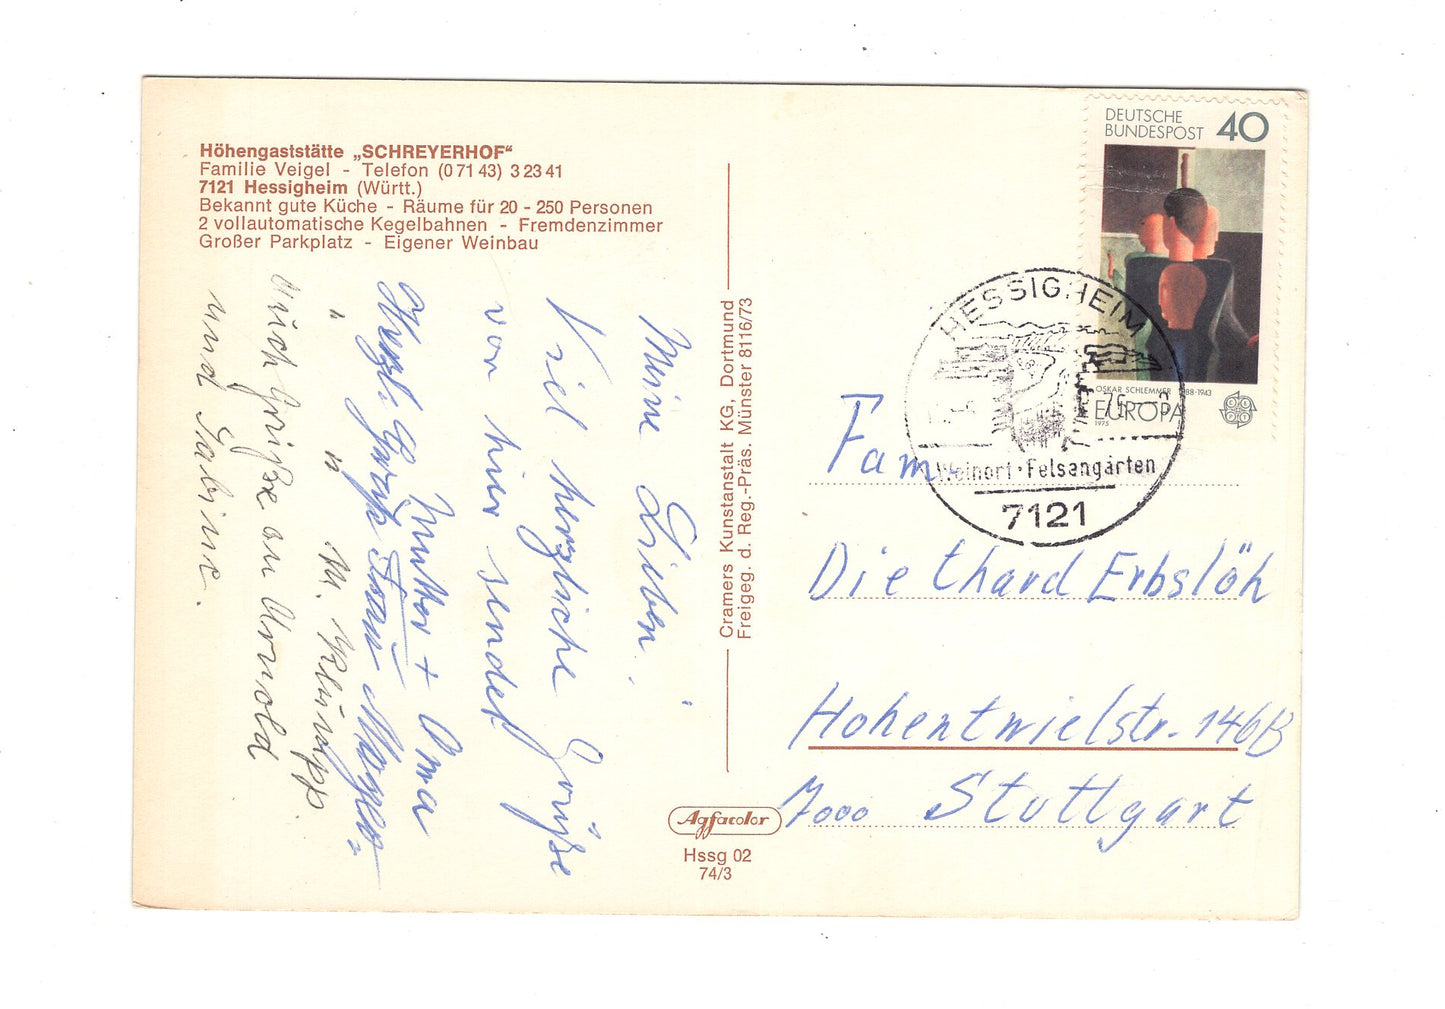 Höhengaststätte „SCHREYERHOF"
Familie Veigel - Telefon (0 71 43) 3 23 41
7121 Hessigheim (Württ.)
Bekannt gute Küche - Räume für 20 - 250 Personen
2 vollautomatische Kegelbahnen - Fremdenzimmer
Großer Parkplatz - Eigener Weinbau
Meine Lieben!
Viel herzliche Grüße
von hier sendet
Mutter + Oma
Herzl. Grüße
" " M. Klumpp
Auch Grüße an Arnold
und Sabine.
Cramers Kunstanstalt KG, Dortmund
Freigeg. d. Reg.-Präs. Münster 8116/73
Agfacolor
Hssg 02
74/3
DEUTSCHE
BUNDESPOST 40
OSKAR SCHLEMMER 1888-1943
EUROPA
1975
HESSIGHEIM
Weinort · Felsengärten
7121
Fam.
Diethard Erbslöh
Hohentwielstr. 146B
7000 Stuttgart